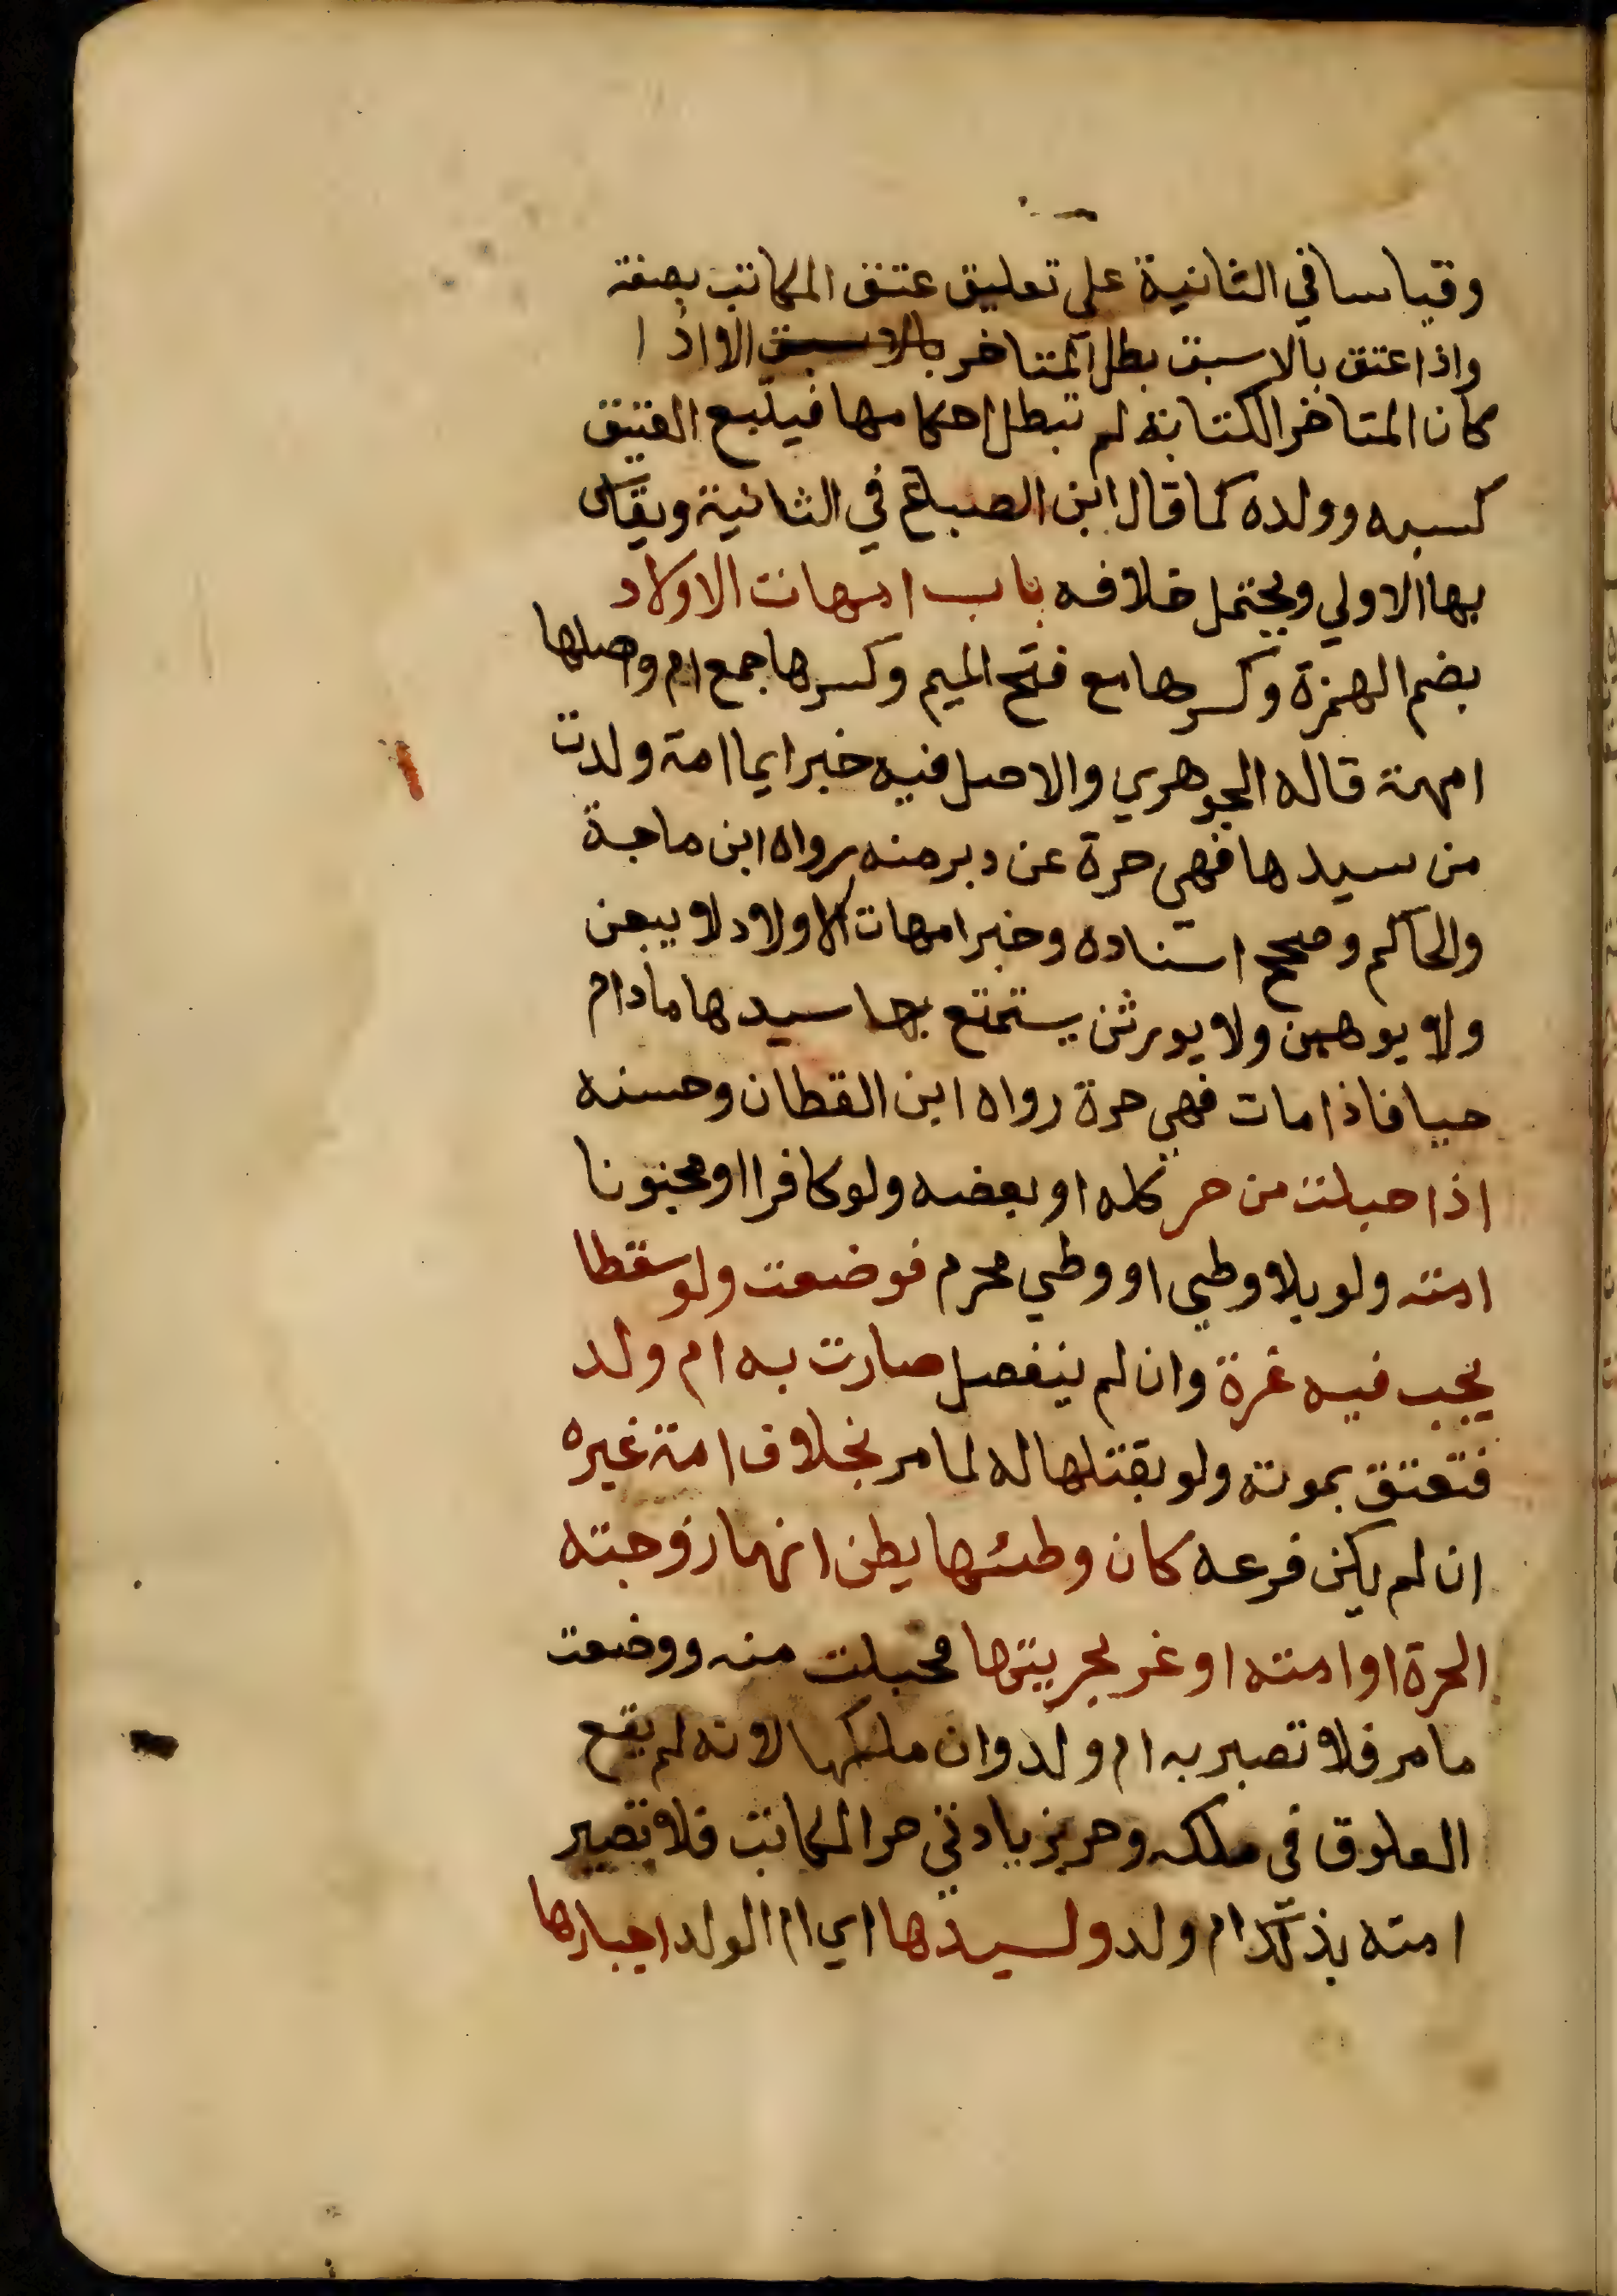 وقياسا في الثانية علي تعليق عتق المكاتب بصفة
واذا اعتق بالاسبق بطل المتاخر بالاسبق الا اذا
كان المتاخر الكتابة لم تبطل احكامها فيتبع العتيق
كسبه وولده كما قال ابن الصباغ في الثانية ويقاس
بها الاولي ويحتمل خلافه باب امهات الاولاد
بضم الهمزة وكسرها مع فتح الميم وكسرها جمع ام واصلها
امهة قاله الجوهري والاصل فيه خبر ايما امة ولدت
من سيدها فهي حرة عن دبر منه رواه ابن ماجة
والحاكم وصحح اسناده وخبر امهات الاولاد لا يبعن
ولا يوهبن ولا يورثن يستمتع بها سيدها مادام
حيا فاذا مات فهي حرة رواه ابن القطان وحسنه
اذا حبلت من حر كله او بعضه ولو كافرا او مجنونا
امته ولو بلا وطي او وطي محرم فوضعت ولو سقطا
يجب فيه غرة وان لم ينفصل صارت به ام ولد
فتعتق بموته ولو بقتلها له لما مر بخلاف امة غيره
ان لم يكن فرعه كان وطئها يظن انها زوجته
الحرة او امته او غر بحريتها فحبلت منه ووضعت
ما مر فلا تصير به ام ولد وان ملكها لانه لم يقع
العلوق في ملكه وخرج بزيادتي حر المكاتب فلا تصير
امته بذلك ام ولد ولسيدها اي ام الولد اجبارها